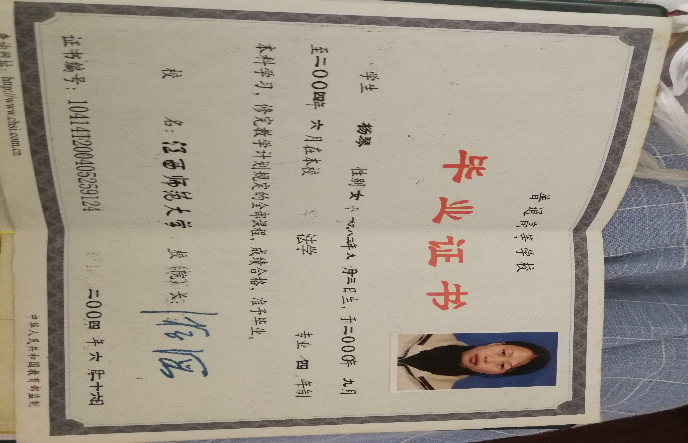 普通高等学校
毕业证书
学生 杨琴 性别 女, 一九八二年九月三日生, 于二〇〇〇年 九月
至二〇〇四年 六月在本校 法学 专业 四 年制
本科学习, 修完教学计划规定的全部课程, 成绩合格, 准予毕业。
校 名: 江西师范大学 校(院)长:
二〇〇四年 六月二十六日
证书编号: 104141200405259124
查询网址: http://www.chsi.com.cn
中华人民共和国教育部监制